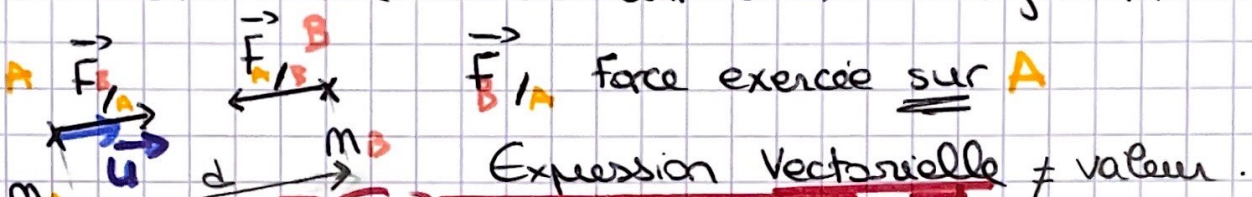 A F B/A F A/B B F B/A Force exercée sur A
u d m B Expression Vectorielle ≠ valeur.
m